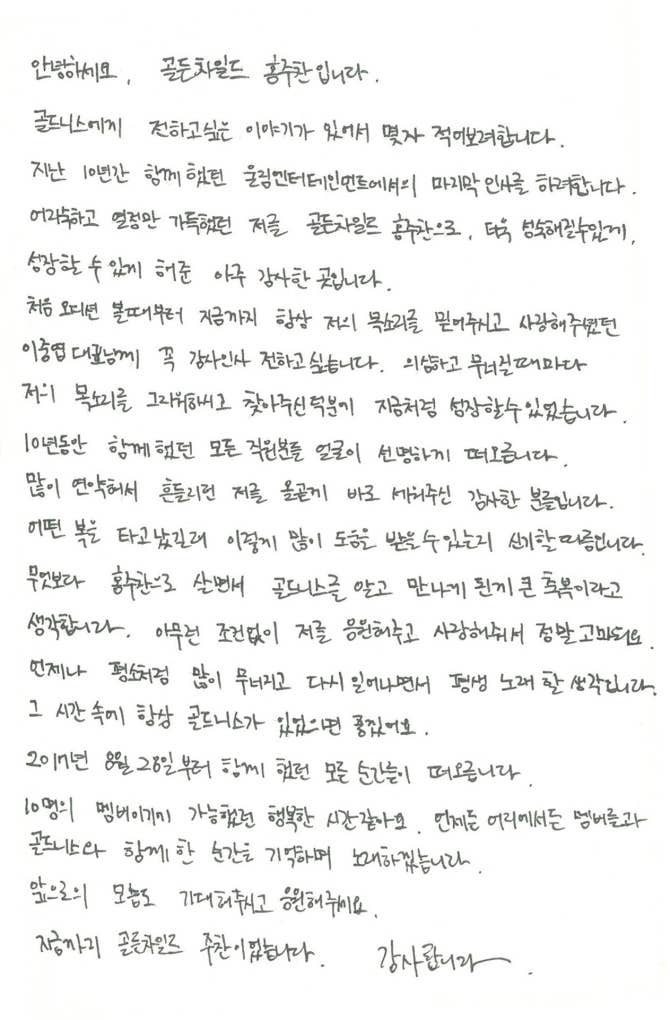 안녕하세요, 골든차일드 홍주찬입니다.
골드니스에게 전하고싶은 이야기가 있어서 몇자 적어보려합니다.
지난 10년간 함께 했던 울림엔터테인먼트에서의 마지막 인사를 하려합니다.
어리숙하고 열정만 가득했던 저를 골든차일드 홍주찬으로, 더욱 성숙해질수있게,
성장할 수 있게 해준 아주 감사한 곳입니다.
처음 오디션 볼때부터 지금까지 항상 저의 목소리를 믿어주시고 사랑해주셨던
이중엽 대표님께 꼭 감사인사 전하고싶습니다. 의심하고 무너질때마다
저의 목소리를 그리워하시고 찾아주신덕분에 지금처럼 성장할수있었습니다.
10년동안 함께했던 모든 직원분들 얼굴이 선명하게 떠오릅니다.
많이 연약해서 흔들리던 저를 올곧게 바로 세워주신 감사한 분들입니다.
어떤 복을 타고났길래 이렇게 많이 도움을 받을수있는지 신기할따름입니다.
무엇보다 홍주찬으로 살면서 골드니스를 알고 만나게 된게 큰 축복이라고
생각합니다. 아무런 조건없이 저를 응원해주고 사랑해줘서 정말 고마워요.
언제나 평소처럼 많이 무너지고 다시 일어나면서 평생 노래 할 생각입니다.
그 시간 속에 항상 골드니스가 있었으면 좋겠어요.
2017년 8월 28일부터 함께 했던 모든 순간들이 떠오릅니다.
10명의 멤버이기에 가능했던 행복한 시간같아요. 언제든 어디에서든 멤버들과
골드니스와 함께 한 순간을 기억하며 노래하겠습니다.
앞으로의 모습도 기대해주시고 응원해주세요.
지금까지 골든차일드 주찬이었습니다. 감사합니다.